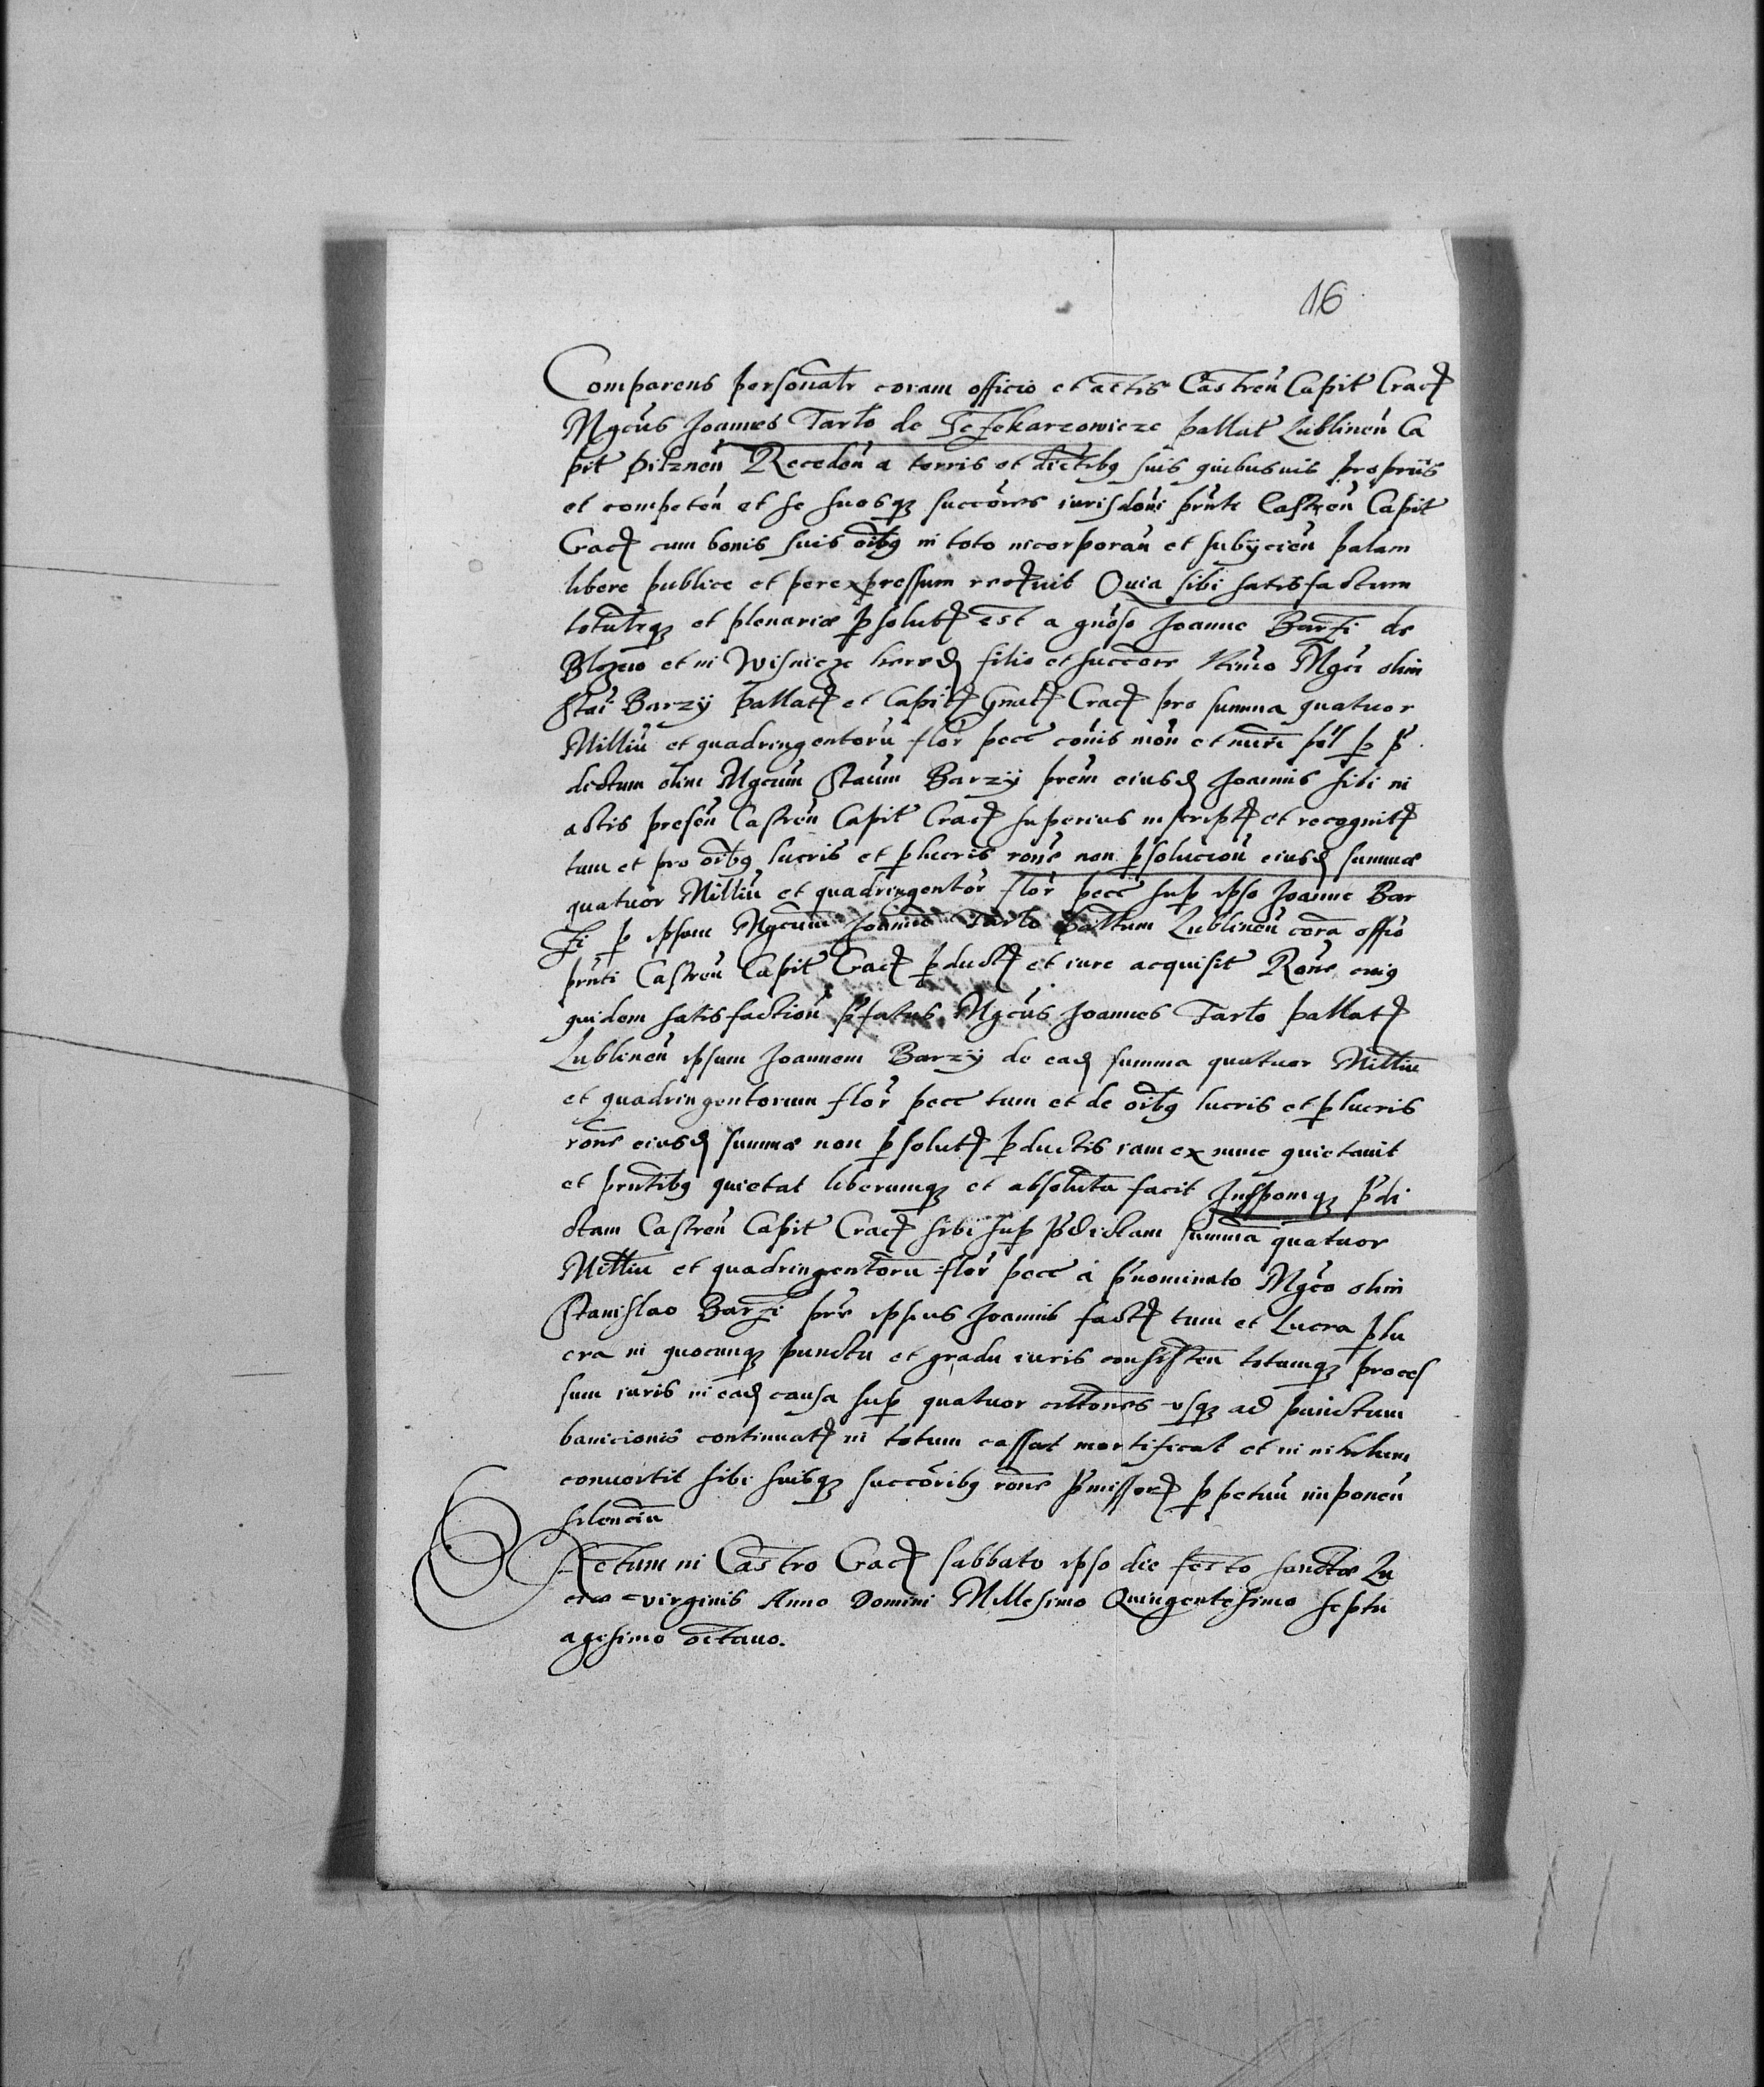 16
Comparens personatr coram officio et actis Castren Capit Crac
Mgcus Joannes Tarlo de Sczekarzowicze pallat Lublinen Ca
pit pilznen Receden a terris et dictibq suis quibusuis proprijs
et competen et se suosq succores iurisdoni pnti Castren Capit
Crac cum bonis suis oibq in toto incorporan et subijcien palam
libere publice et per expressum recuit Quia sibi satisfactum
totalrq et plenarie psolut est a gnoso Joanne Barzi de
Blozew et in Wisnicze hered filio et succore Mgci olim
Stai Barzij Pallat et Capit Gnal Crac pro summa quatuor
Milliu et quadringentoru flor pece cois mon et nuri pol p p
dictum olim Mgcum Staum Barzij prem eiusd Joannis sibi in
actis presen Castren Capit Crac superius inscript et recognit
tum et pro oibq lucris et plucris rone non psolucion eiusd summae
quatuor Milliu et quadringentor flor pece sup ipso Joanne Bar
zi p ipsum Mgcum Joannem Tarlo Pallatum Lublinen cora offio
pnti Castren Capit Crac pduct et iure acquisit Rone cuiq
quidem satisfaction pfatus Mgcus Joannes Tarlo pallat
Lublinen ipsum Joannem Barzij de ead summa quatuor Milliu
et quadringentorum flor pece tum et de oibq lucris et plucris
rone eiusd summae non psolut pductis iam ex nunc quietauit
et pntibq quietat liberumq et absolutu facit Inspomq pdi
ctam Castren Capit Crac sibi sup pdictam summa quatuor
Milliu et quadringentoru flor pece a pnominato Mgco olim
Stanislao Barzi pre ipsius Joannis fact tum et Lucra plu
cra in quocunq punctu et gradu iuris consisten totumq proces
sum iuris in ead causa sup quatuor citones usq ad punctum
banicionis continuat in totum cassat mortificat et in nihilum
conuertit sibi suisq succoribq rone pmissor ppetuu imponen
silenciu
Actum in Castro Crac sabbato ipso die festo sanctae Lu
ciae virginis Anno Domini Millesimo Quingentesimo septu
agesimo octauo.